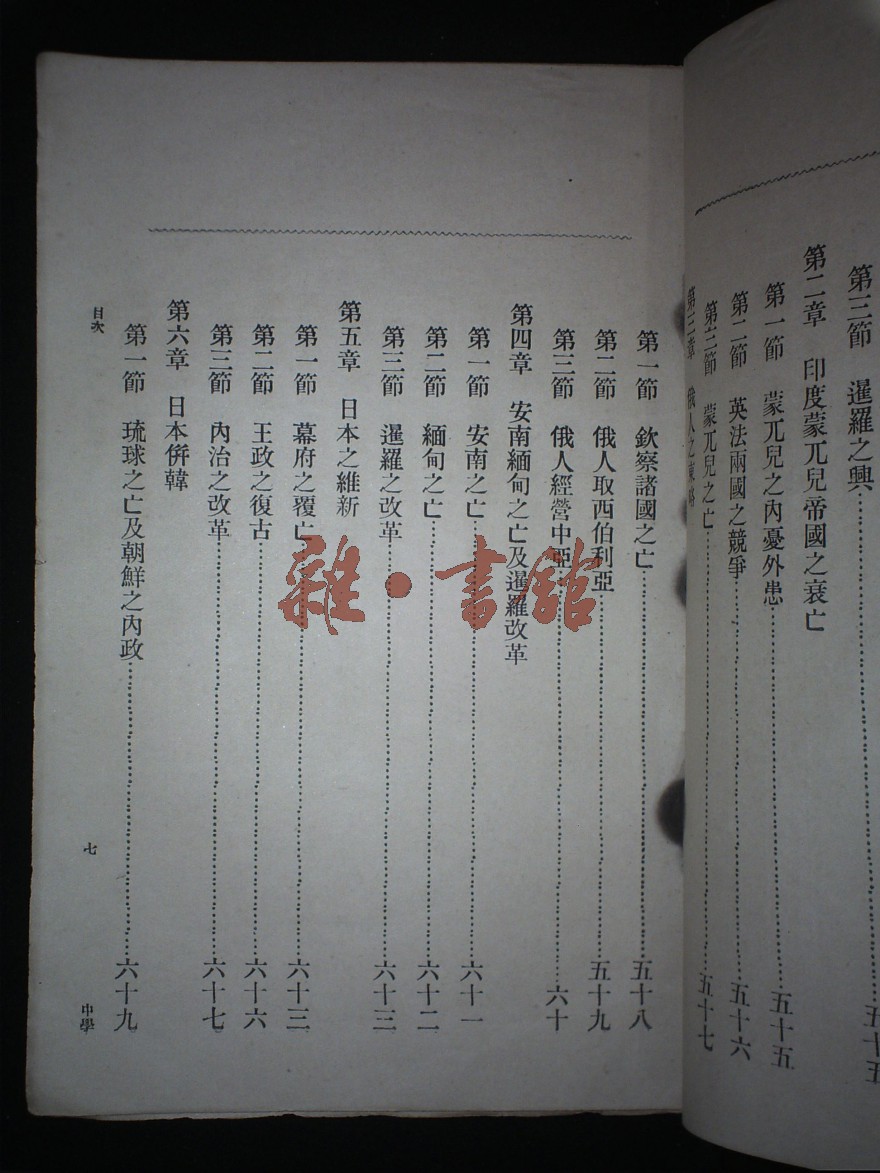 第三節　暹羅之興……五十五
第二章　印度蒙兀兒帝國之衰亡
第一節　蒙兀兒之內憂外患……五十五
第二節　英法兩國之競爭……五十六
第三節　蒙兀兒之亡……五十七
第三章　俄人之東略
第一節　欽察諸國之亡……五十八
第二節　俄人取西伯利亞……五十九
第三節　俄人經營中亞……六十
第四章　安南緬甸之亡及暹羅改革
第一節　安南之亡……六十一
第二節　緬甸之亡……六十二
第三節　暹羅之改革……六十三
第五章　日本之維新
第一節　幕府之覆亡……六十三
第二節　王政之復古……六十六
第三節　內治之改革……六十七
第六章　日本併韓
第一節　琉球之亡及朝鮮之內政……六十九
目次　七　中學
雜·書館